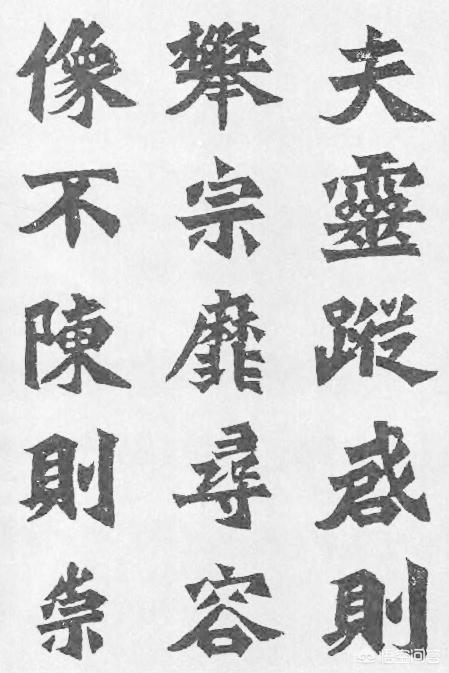 夫靈蹤啟則
攀宗靡尋容
像不陳則崇
悟空问答